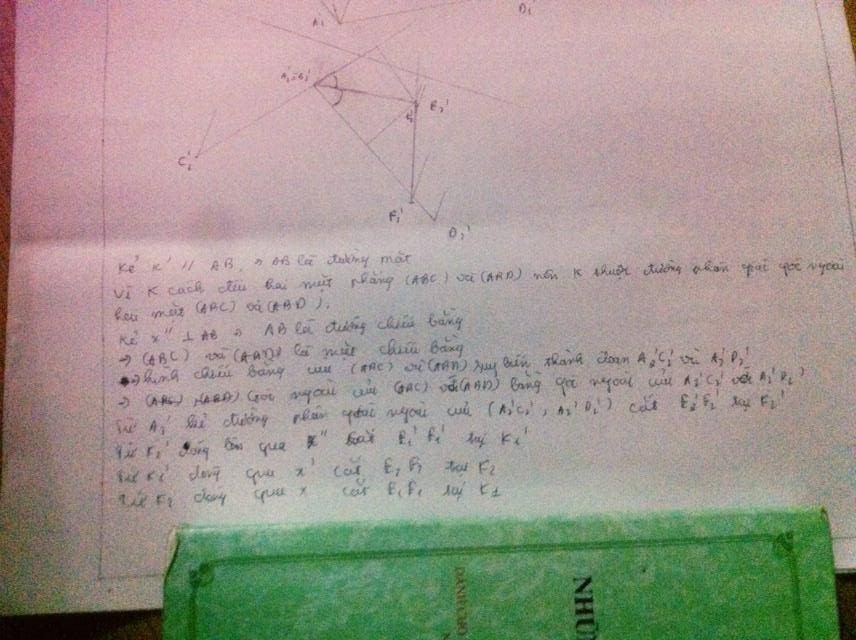 A₁
D₁'
A₂'≡B₂'
E₂'
C₂'
F₂'
D₂'
Kẻ x' // AB, → AB là đường mặt
Vì K cách đều hai mặt phẳng (ABC) và (ABD) nên K thuộc đường phân giác góc ngoài
hai mặt (ABC) và (ABD).
Kẻ x'' ⊥ AB → AB là đường chiếu bằng
→ (ABC) và (ABD) là mặt chiếu bằng
→ hình chiếu bằng của (ABC) và (ABD) suy biến thành đoạn A₂'C₂' và A₂'D₂'
→ góc ngoài của (ABC) với (ABD) bằng góc ngoài của A₂'C₂' với A₂'D₂'
Từ A₂' kẻ đường phân giác ngoài của (A₂'C₂', A₂'D₂') cắt E₂'F₂' tại K₂'
Từ K₂' dóng lên qua x'' cắt E₁'F₁' tại K₁'
Từ K₁' dóng qua x' cắt E₂F₂ tại K₂
Từ K₂ dóng qua x cắt E₁F₁ tại K₁
NHỮ
DANH